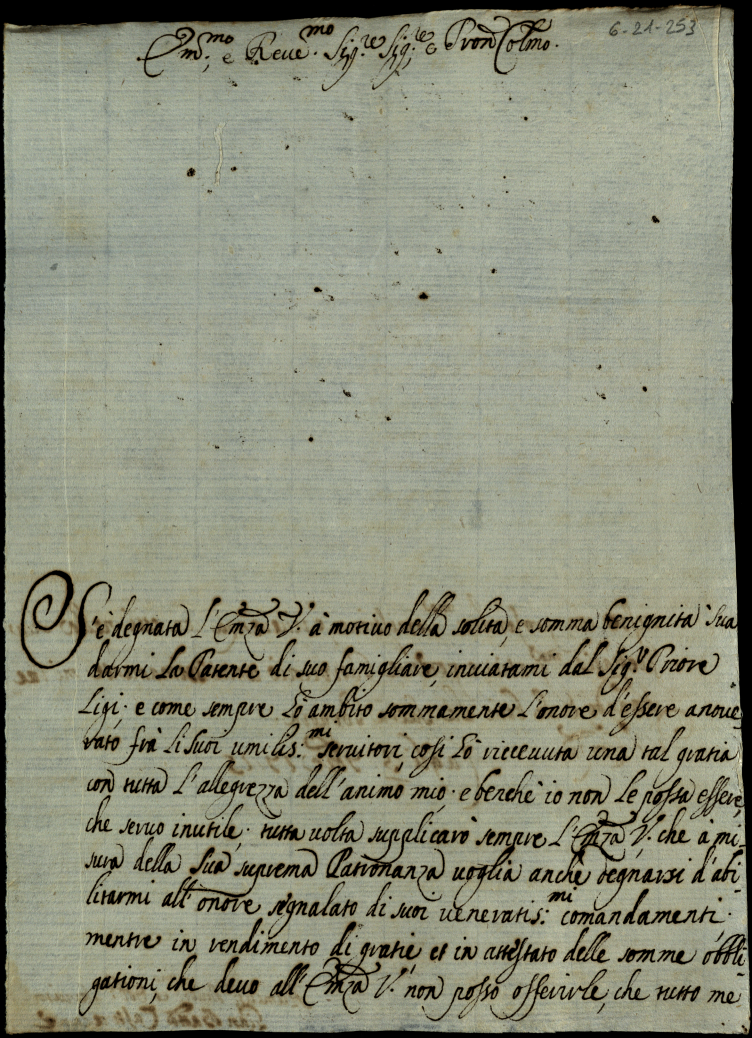 6-21-253
Em.mo e Reue.mo Sig.re Sig.re e Pron Colmo.
S'è degnata l'Emza V. à motiuo della solita, e somma benignità Sua
darmi la Patente di suo famigliare, inuiatami dal Sig.r Priore
Ligi. e come sempre hò ambito sommamente l'onore d'essere anoue
rato frà li suoi umilis:mi seruitori, così hò riceuuta una tal gratia
con tutta l'allegrezza dell'animo mio. e benche io non le possa essere,
che seruo inutile, tutta uolta supplicarò sempre l'Emza V. che à mi-
sura della Sua suprema Patronanza uoglia anche degnarsi d'abi-
litarmi all'onore segnalato di suoi ueneratis:mi comandamenti,
mentre in rendimento di gratie et in attestato delle somme obbli
gationi, che deuo all'Emza V. non posso offerirle, che tutto me